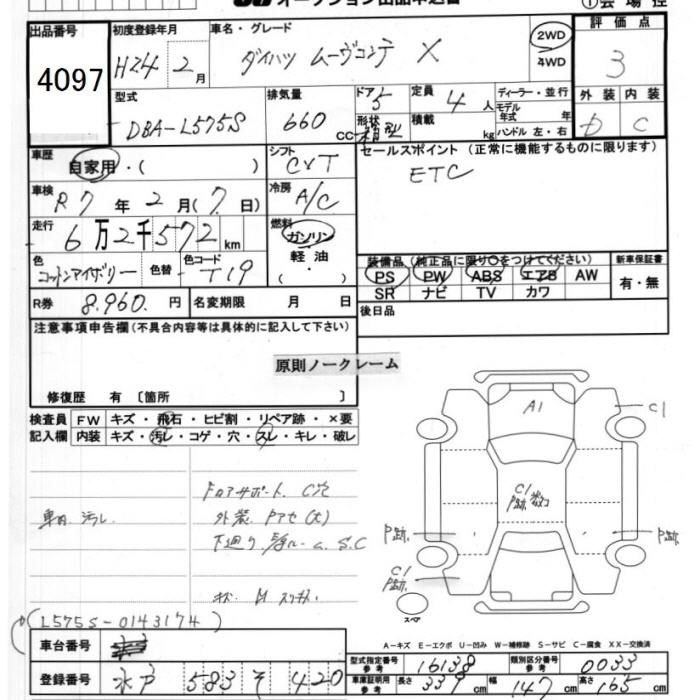 オークション出品申込書 ①会場控
出品番号 初度登録年月 車名・グレード 2WD 4WD 評価点
4097 H24年2月 ダイハツ ムーヴコンテ X 3
型式 排気量 ドア 5 定員 4人 ディーラー・並行 外装 内装
DBA-L575S 660CC 形状 箱型 積載 kg モデル年式 年 ハンドル 左・右 D C
車歴 自家用・( ) シフト CVT セールスポイント (正常に機能するものに限ります)
ETC
車検 R7年2月(7日) 冷房 A/C
走行 6万2千572km 燃料 ガソリン 軽油 ( ・ )
装備品 (純正品に限り○をつけてください) 新車保証書
色 コットンアイボリー 色替 色コード T19
PS PW ABS エアB AW 有・無
SR ナビ TV カワ
R券 8,960.円 名変期限 月 日 後日品
注意事項申告欄(不具合内容等は具体的に記入して下さい)
原則ノークレーム
修復歴 有〔箇所 〕
検査員 FW キズ・飛石・ヒビ割・リペア跡・×要
記入欄 内装 キズ・汚レ・コゲ・穴・スレ・キレ・破レ
A1 C1
ドロアサポート C穴
車内 汚レ 外装 Pアセ(大)
C1
P跡
下廻り S.C
P跡 P跡
C1
P跡
スペア
(L575S-0143174)
A-キズ E-エクボ U-凹み W-補修跡 S-サビ C-腐食 XX-交換済
車台番号
型式指定番号 参考 16138 類別区分番号 参考 0033
登録番号 水戸 583 そ 420
車庫証明用 参考 長さ 339cm 幅 147cm 高さ 165cm